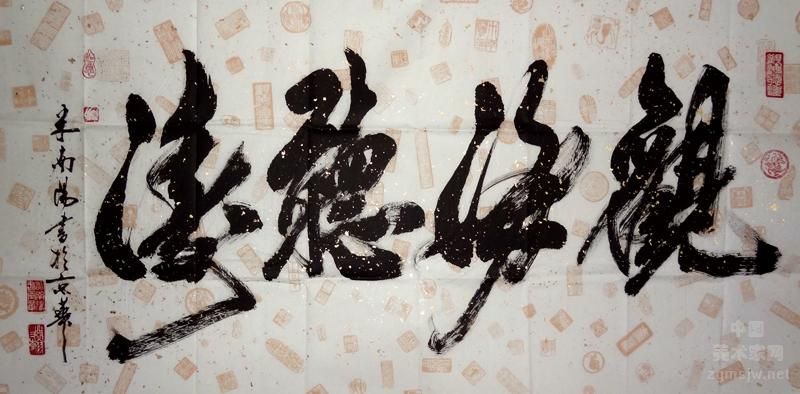 觀海聽濤
米南陽書於京華
中国
美术家网
zgmsjw.net